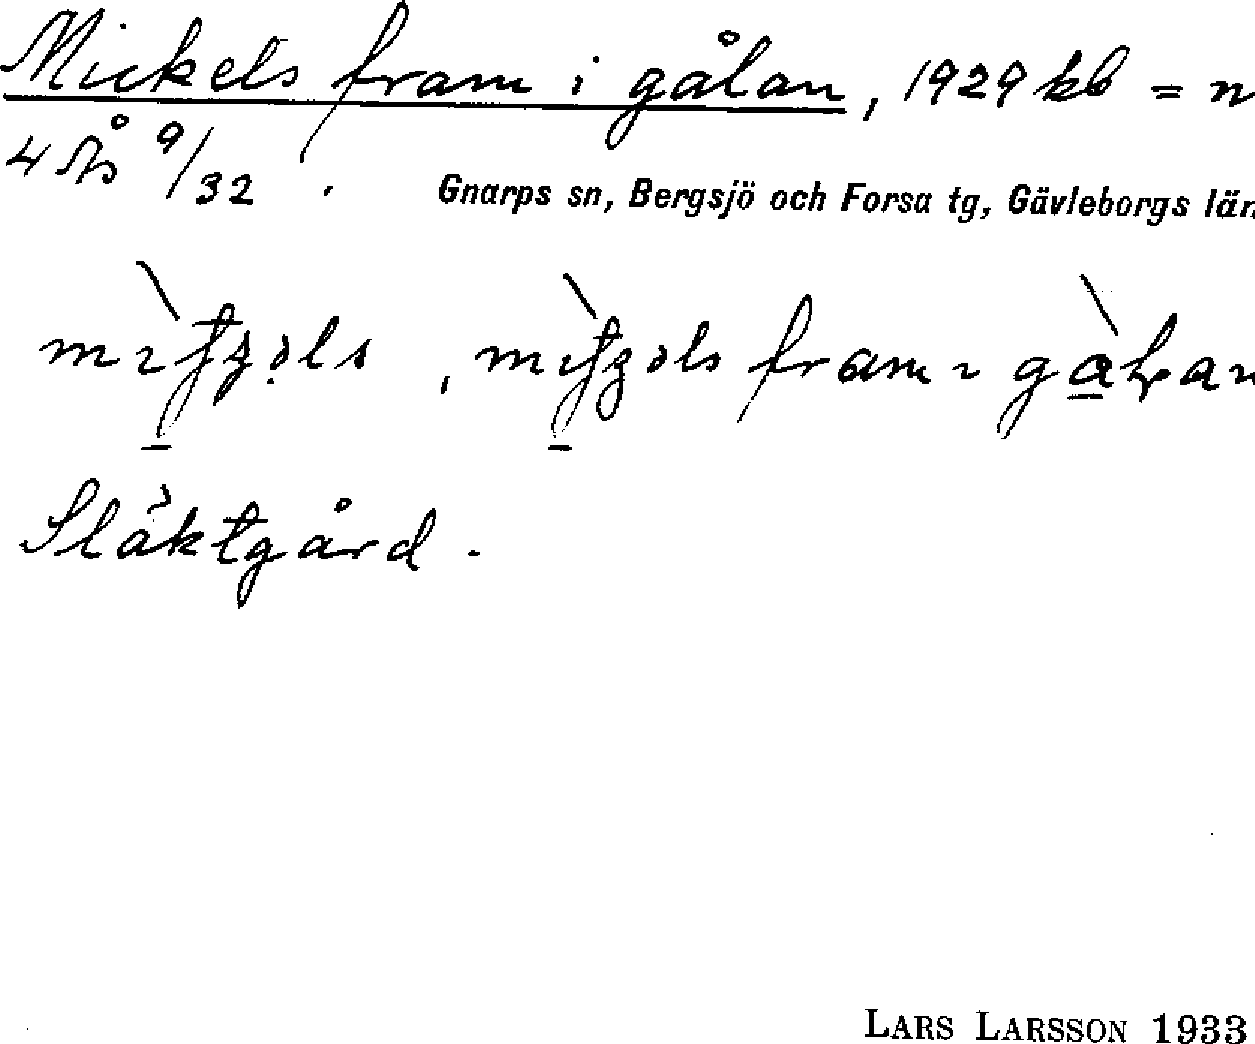 Mickels fram i gålan, 1929 kb = n
4 Ås 9/32. Gnarps sn, Bergsjö och Forsa tg, Gävleborgs län
fram ı
Släktgård.
LARS LARSSON 1933